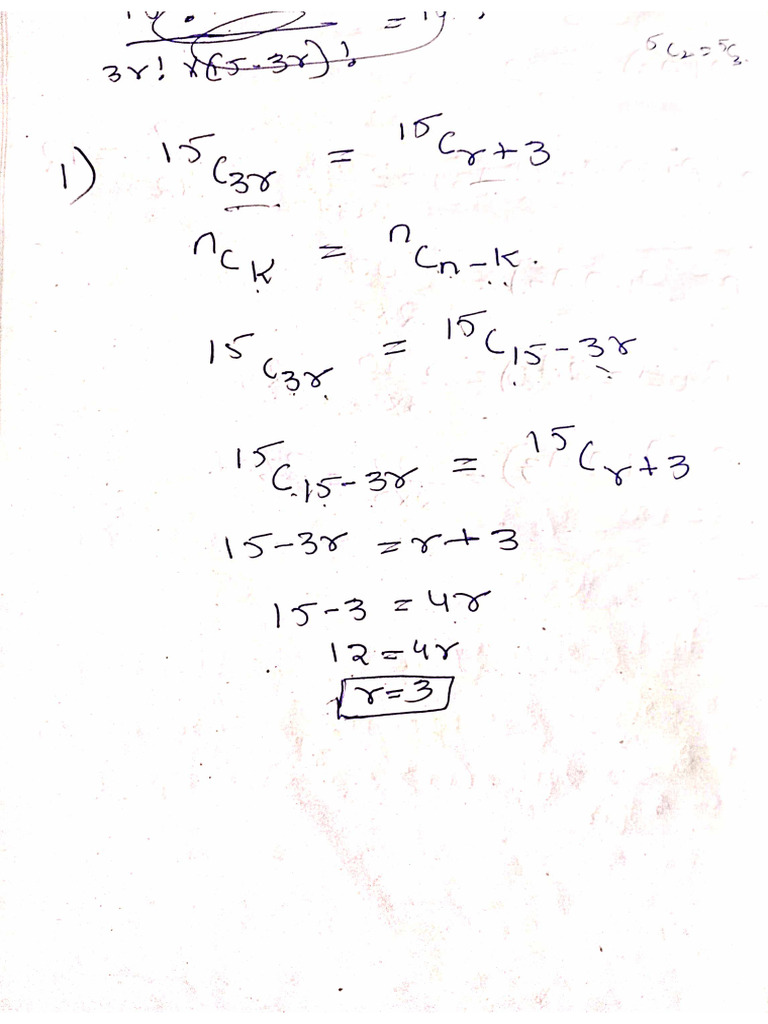 3r! × (15-3r)! =
⁵C₂=⁵C₃.
1) ¹⁵C₃ᵣ = ¹⁵Cᵣ₊₃
ⁿCₖ = ⁿCₙ₋ₖ.
¹⁵C₃ᵣ = ¹⁵C₁₅₋₃ᵣ
¹⁵C₁₅₋₃ᵣ = ¹⁵Cᵣ₊₃
15-3r = r+3
15-3 = 4r
12=4r
r=3